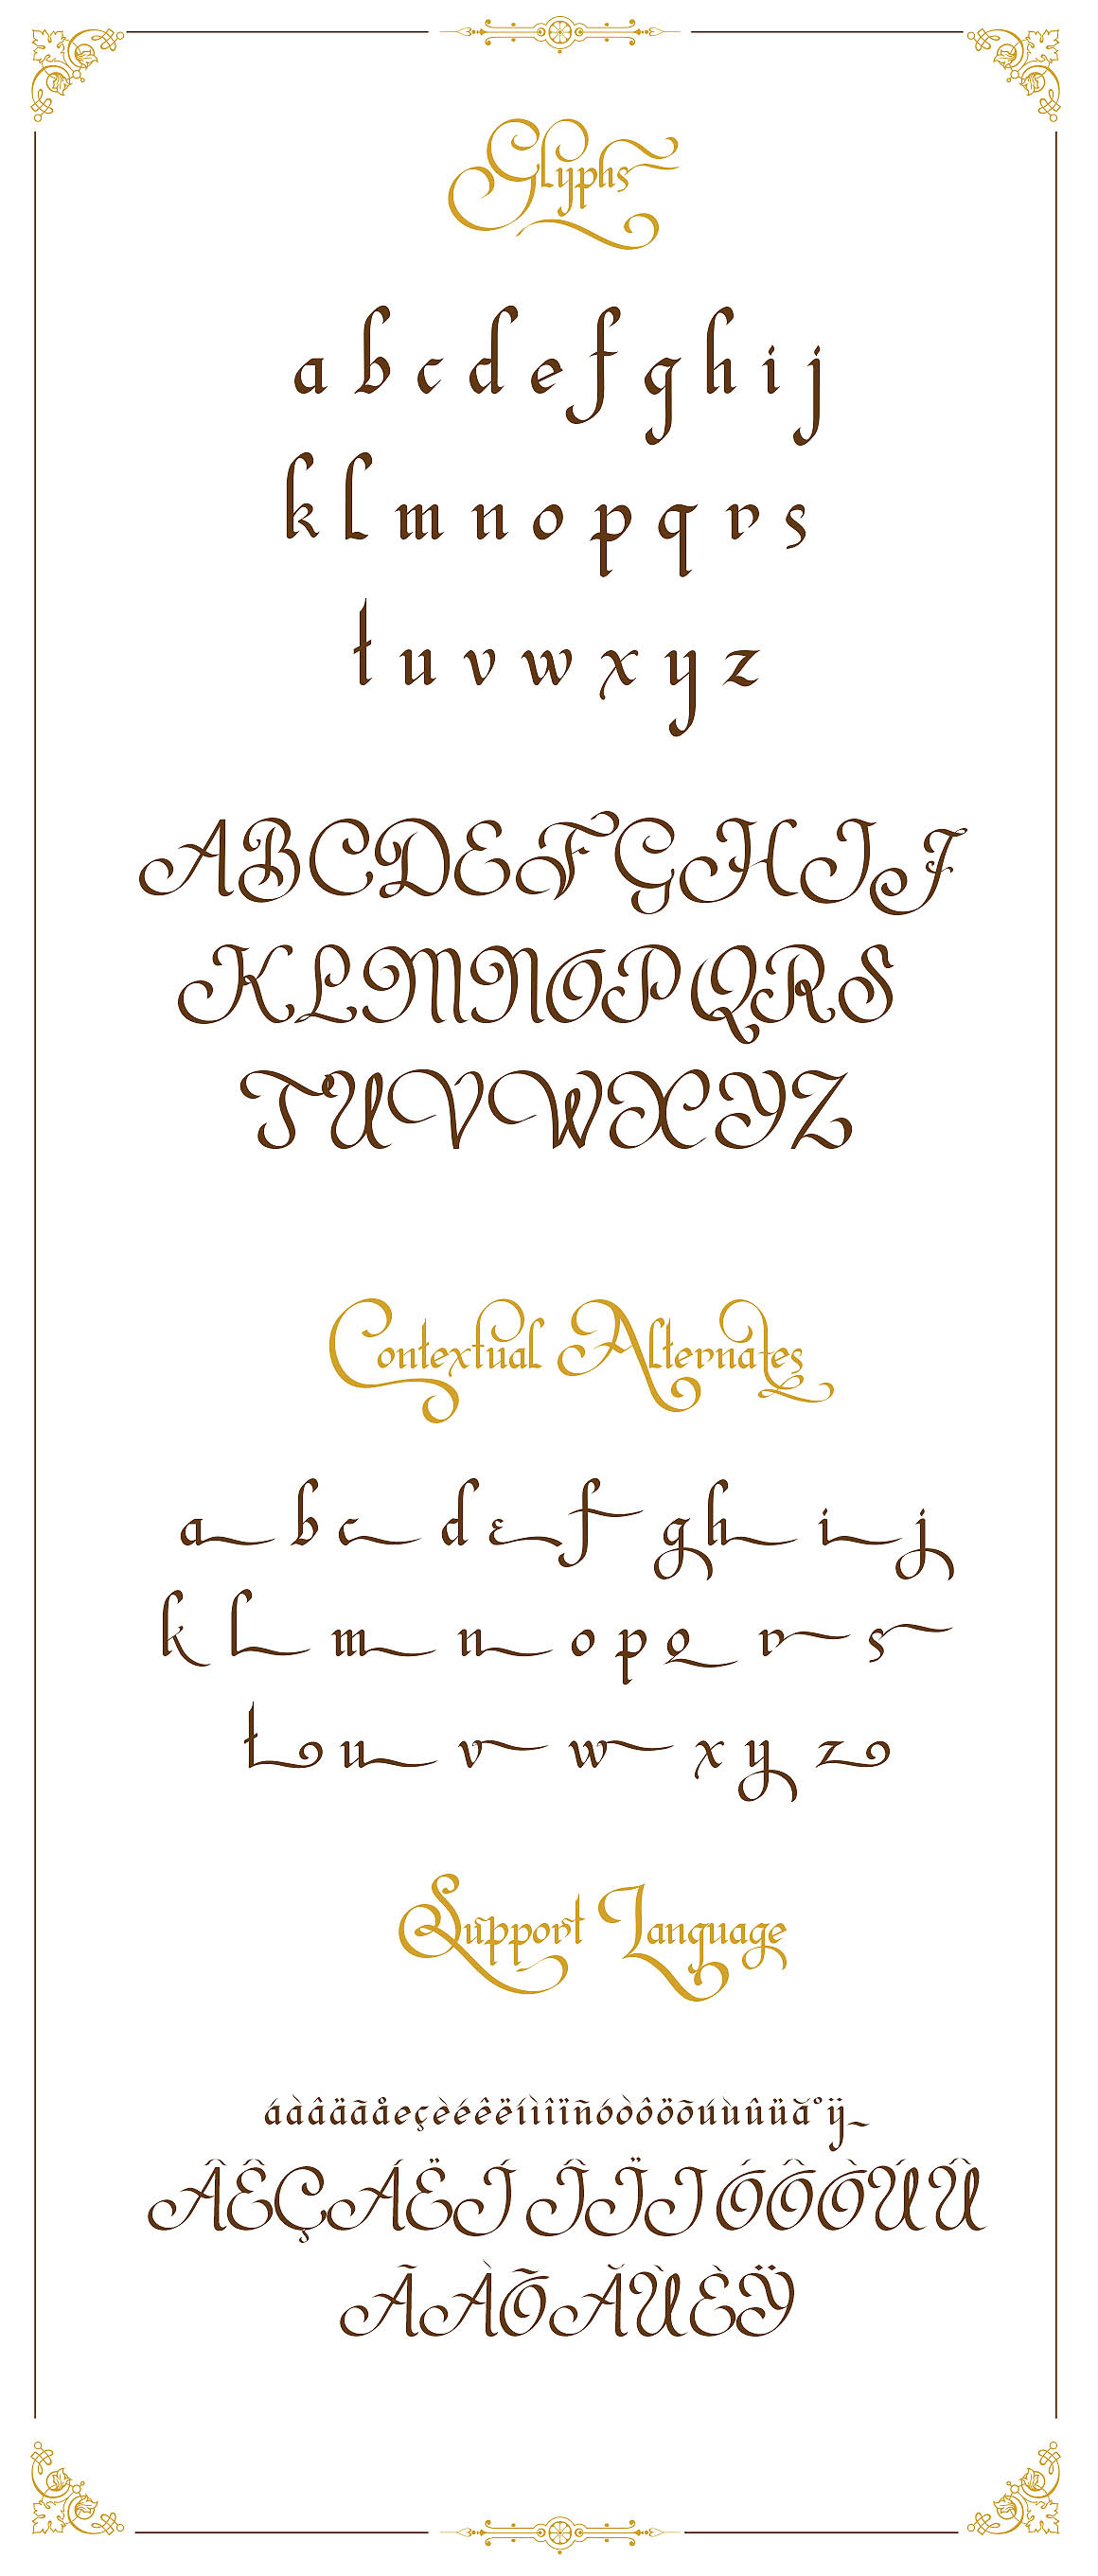 Glyphs
a b c d e f g h i j
k l m n o p q r s
t u v w x y z
A B C D E F G H I J
K L M N O P Q R S
T U V W X Y Z
Contextual Alternates
a b c d e f g h i j
k l m n o p q r s
t u v w x y z
Support Language
áàâäãåeçèéêëíìîïñóòôöõúùûüă°ÿ
ÂÊÇÁËÍ ÎÏIÓÔÒÚÛ
ÃÀÕĂÙÈŸ